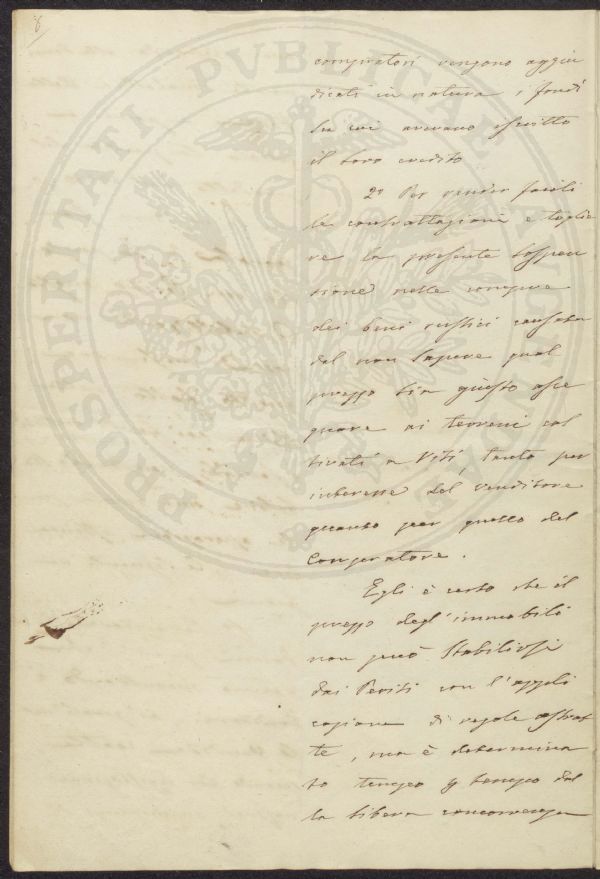 8
compratori vengono aggiu
dicati in natura i fondi
su cui avevano iscritto
il loro credito
2º Per render facili
le contrattazioni e toglie
re la presente sospen
sione nelle compre
dei beni rustici causata
dal non sapere qual
prezzo sia giusto asse
gnare ai terreni col
tivati a Viti, tanto per
interesse del venditore
quanto per quello del
Compratore.
Egli è certo che il
prezzo degl'immobili
non può Stabilirsi
dai Periti con l'appli
cazione di regole astrat
te, ma è determina
to tempo tempo dal
la libera concorrenza
PROSPERITATI PVBLICAE